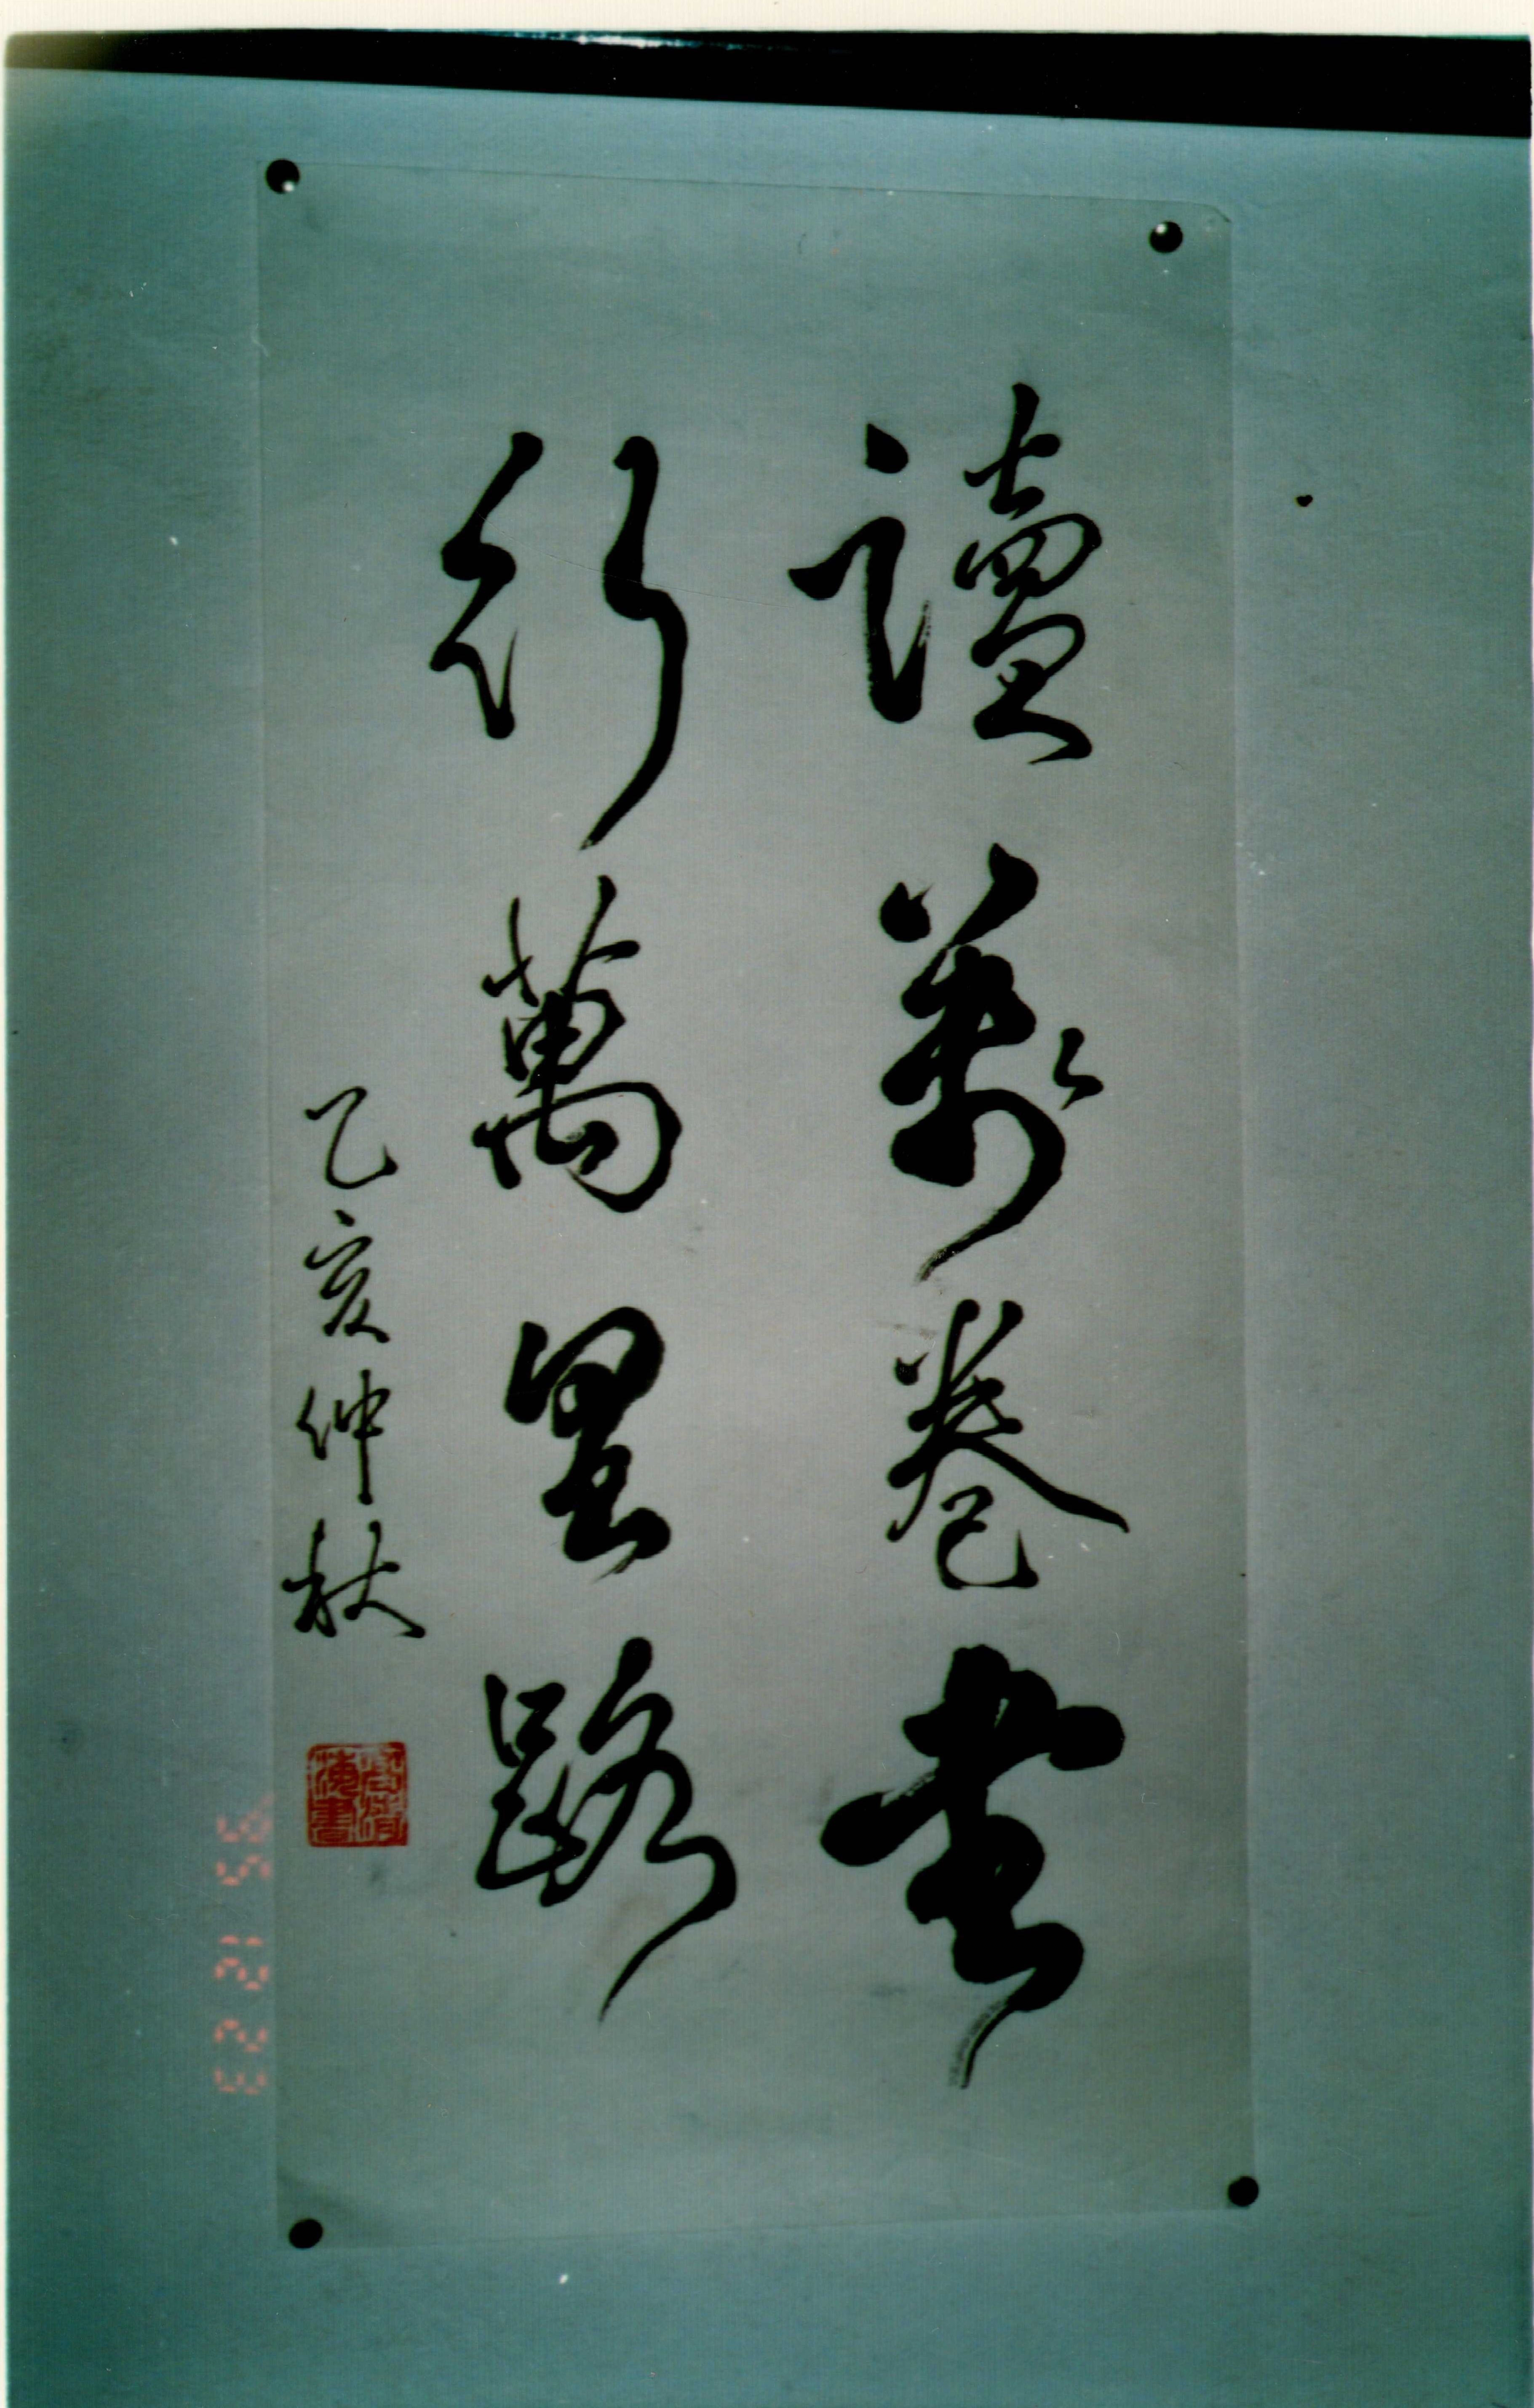 讀萬卷書
行萬里路
乙亥仲秋
95 12 23